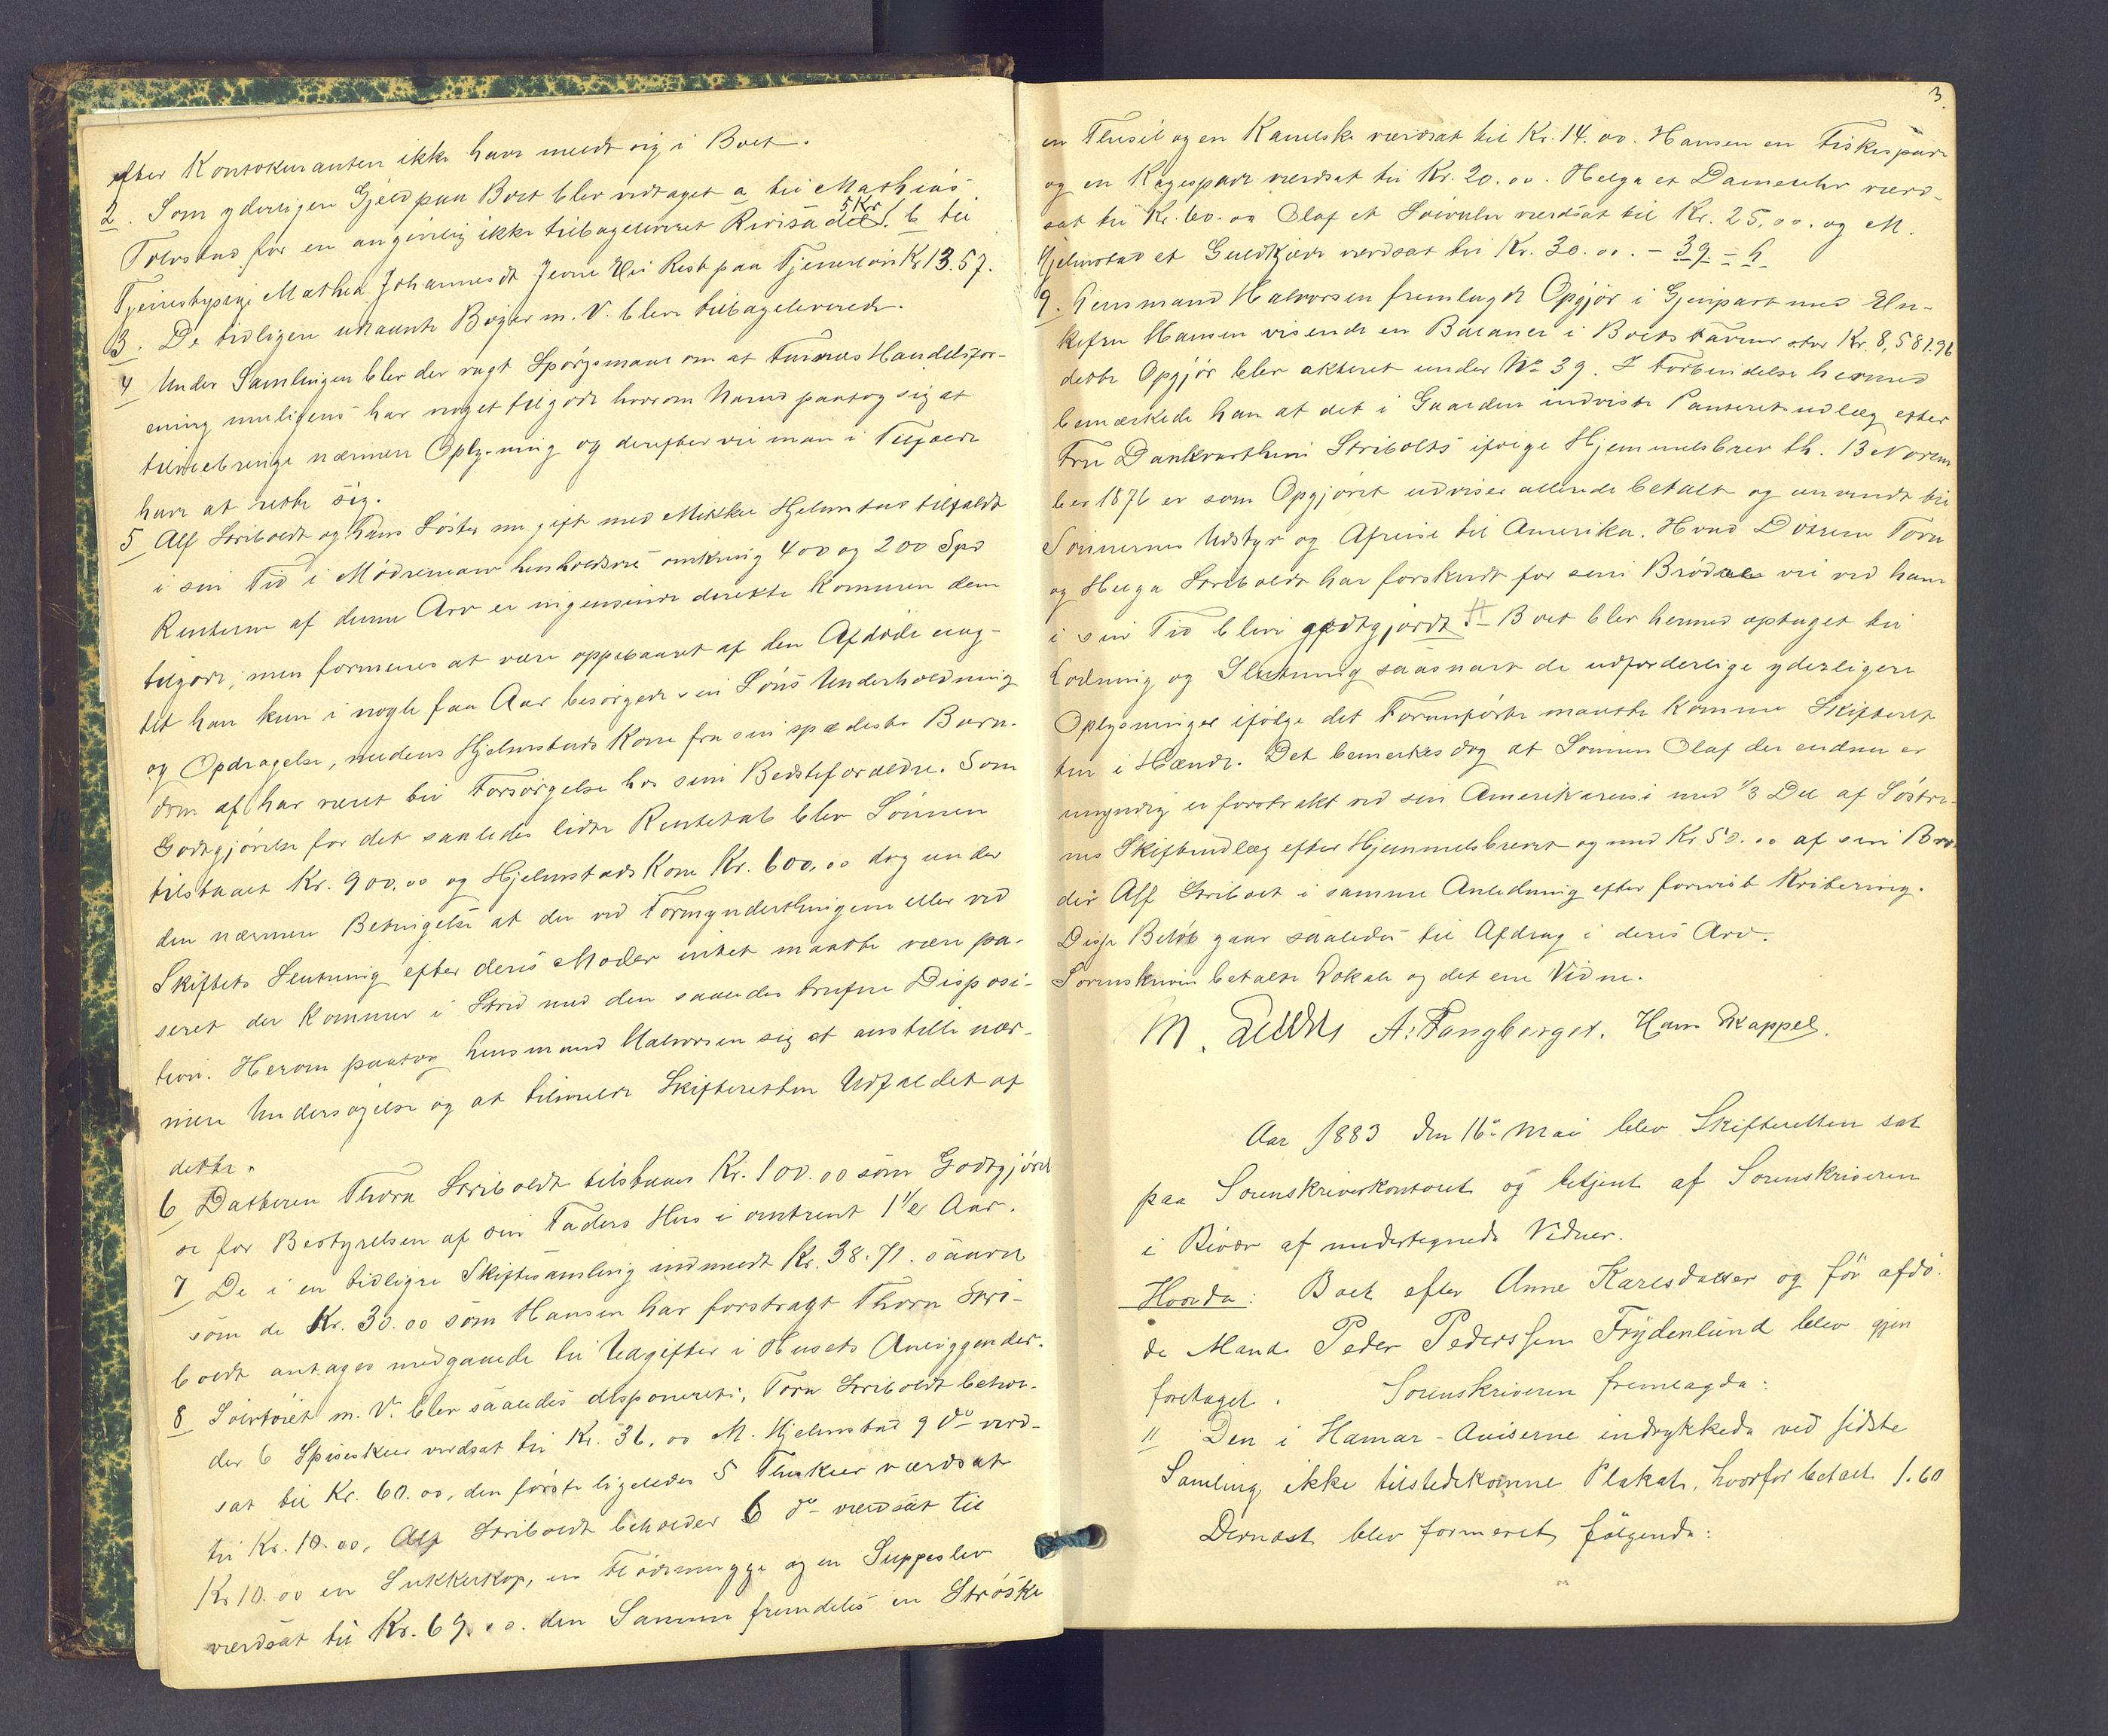 efter Kontokuranten ikke have meldt sig i Boet.
2. Som yderligere Gjeld paa Boet blev vedtaget a til Mathias
Tolvstad for en angivelig ikke tilbageleveret 5 Kr b til
Tjenestepige Mathea Johannesdt Jevne Rest paa Tjenerløn Kr 13.57.
3. De tidligere udlaante Bøger m. V. bleve tilbageleverede.
4 Under Samlingen blev der vagt Spørgsmaal om at Furnæs Handelsfor-
ening muligens har noget tilgode hvorom Mand paatog sig at
tilveiebringe nærmere Oplysning og derefter vil man i Tilfælde
have at rette sig.
5 Alf Striboldt og hans Søster nu gift med Mikkel Hjelmstad tilfaldt
i sin Tid i Mødrenearv henholdsvis omkring 400 og 200 Spd
Renterne af denne Arv er ingensinde direkte kommen dem
tilgode, men formenes at være oppebaaret af den Afdøde uag-
tet han kun i nogle faa Aar besørgede sin Søns Underholdning
og Opdragelse, medens Hjelmstads Kone fra sin spædeste Barn-
dom af har været til Forsørgelse hos sine Bedsteforældre. Som
Godtgjørelse for det saaledes lidte Rentetab blev Sønnen
tilstaaet Kr. 900.00 og Hjelmstads Kone Kr. 600.00 dog under
den nærmere Betingelse at der ved Formynderthingene eller ved
Skiftets Slutning efter deres Moder intet maatte være pa-
seret der kommer i Strid med den saaledes trufne Disposi-
tion. Herom paatog Lensmand Halvorsen sig at anstille nær-
mere Undersøgelse og at tilmelde Skifteretten Udfaldet af
dette.
6 Datteren Thora Striboldt tilstaaes Kr. 100.00 som Godtgjørel
se for Bestyrelsen af sin Faders Hus i omtrent 1 1/2 Aar.
7 De i en tidligre Skiftesamling indmeldt Kr. 38.71. saavel
som de Kr. 30.00 som Hansen har forstragt Thora Stri-
boldt antages medgaaede til Udgifter i Husets Anliggender.
8 Sølvtøiet m. V. blev saaledes disponeret: Tora Striboldt behol-
der 6 Spiseskeer værdsat til Kr. 36.00 M. Hjelmstad 9 do værd-
sat til Kr. 60.00, den første ligeledes 5 Theskeer værdsat
til Kr. 10.00, Alf Striboldt beholder 6 do værdsat til
Kr 10.00 en Sukkerkop, en Flødemugge og en Suppeslev
værdsat til Kr. 69.00. den Samme fremdeles en Strøske
3.
en Thesil og en Kamelske værdsat til Kr. 14.00. Hansen en Fiskespade
og en Kagespade værdsat til Kr. 20.00. Helga et Dameuhr værd-
sat til Kr. 60.00 Olaf et Sølvuhr værdsat til Kr. 25.00. og M.
Hjelmstad et Guldkjæde værdsat til Kr. 30.00. - 39 - h
9. Lensmand Halvorsen fremlagde Opgjør i Gjenpart med En-
kefru Hansen visende en Balance i Boets Faveur stor Kr. 8,581.96
dette Opgjør blev akteret under No 39. I Forbindelse hermed
bemærkede han at det i Gaarden indviste Panteretsudlæg efter
Fru Dankvarthine Striboldts ifølge Hjemmelsbrev th. 13 Novem
ber 1876 er som Opgjøret udviser allerede betalt og anvendt til
Sønnernes Udstyr og Afreise til Amerika. Hvad Døtrene Tora
og Helga Striboldt har forskudt for sine Brødre vil ved ham
i sin Tid blive godtgjordt. Boet blev hermed optaget til
Lodning og Slutning saasnart de udforderlige yderligere
Oplysninger ifølge det Foranførte maatte komme Skifteret
ten i Hænde. Det bemerkes dog at Sønnen Olaf der endnu er
umyndig er forstrakt ved sin Amerikareise med 1/3 Del af Søstre-
nes Skifteudlæg efter Hjemmelsbrevet og med Kr. 50.00 af sin Bro-
der Alf Striboldt i samme Anledning efter forevist Kvitering.
Disse Beløb gaar saaledes til Afdrag i deres Arv.
Sorenskriveren betalte Lokale og det ene Vidne.
M. A. Fangberget. Hans Skappel.
Aar 1883 den 16de Mai blev Skifteretten sat
paa Sorenskriverkontoret og betjent af Sorenskriveren
i Bivær af undertegnede Vidner.
Hvorda: Boet efter Anne Karlsdatter og før afdø-
de Mand Peder Pederssen Frydenlund blev gjen
foretaget. Sorenskriveren fremlagde:
11 Den i Hamar-Aviserne indrykkede ved sidste
Samling ikke tilstedekomne Plakat, hvorfor betalt 1.60
Dernæst blev formeret følgende: